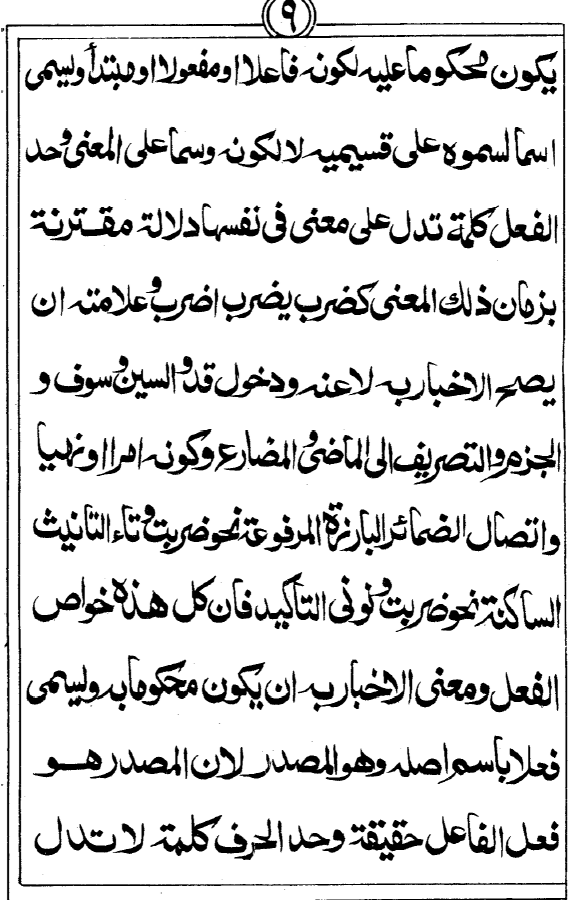 ۹
يكون محكوما عليه لكونه فاعلا او مفعولا او مبتدأ ويسمى
اسما لسموه على قسيميه لا لكونه وسما على المعنى وحد
الفعل كلمة تدل على معنى فى نفسها دلالة مقترنة
بزمان ذلك المعنى كضرب يضرب اضرب وعلامته ان
يصح الاخبار به لا عنه ودخول قد والسين وسوف و
الجزم والتصريف الى الماضى والمضارع وكونه امرا او نهيا
واتصال الضمائر البارزة المرفوعة نحو ضربت وتاء التانيث
الساكنة نحو ضربت ونونى التأكيد فان كل هذه خواص
الفعل ومعنى الاخبار به ان يكون محكوما به ويسمى
فعلا باسم اصله وهو المصدر لان المصدر هو
فعل الفاعل حقيقة وحد الحرف كلمة لا تدل